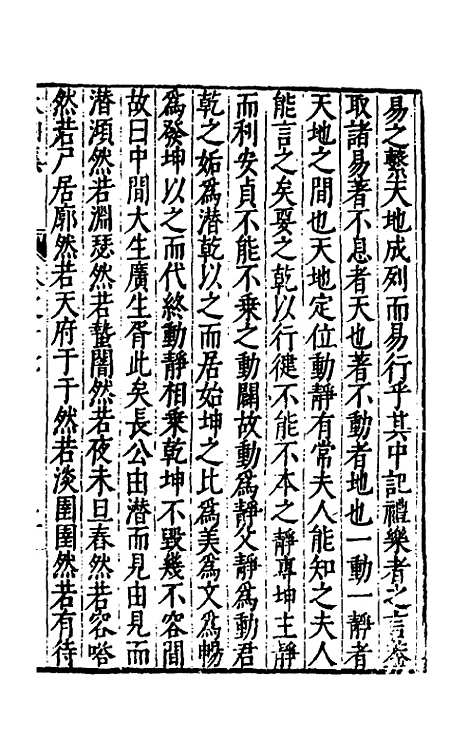 易之繫天地成列而易行乎其中記禮樂者之言蓋
取諸易著不息者天也著不動者地也一動一靜者
天地之間也天地定位動靜有常夫人能知之夫人
能言之矣要之乾以行健不能不本之靜專坤主靜
而利安貞不能不乗之動闢故動爲靜父靜爲動君
乾之姤爲潜乾以之而居始坤之比爲美爲文爲暢
爲發坤以之而代終動靜相乗乾坤不毀幾不容間
故曰中間大生廣生胥此矣長公由潜而見由見而
潜澒然若淵瑟然若蟄闇然若夜未旦舂然若容嗒
然若尸居廓然若天府于于然若淡圉圉然若有待